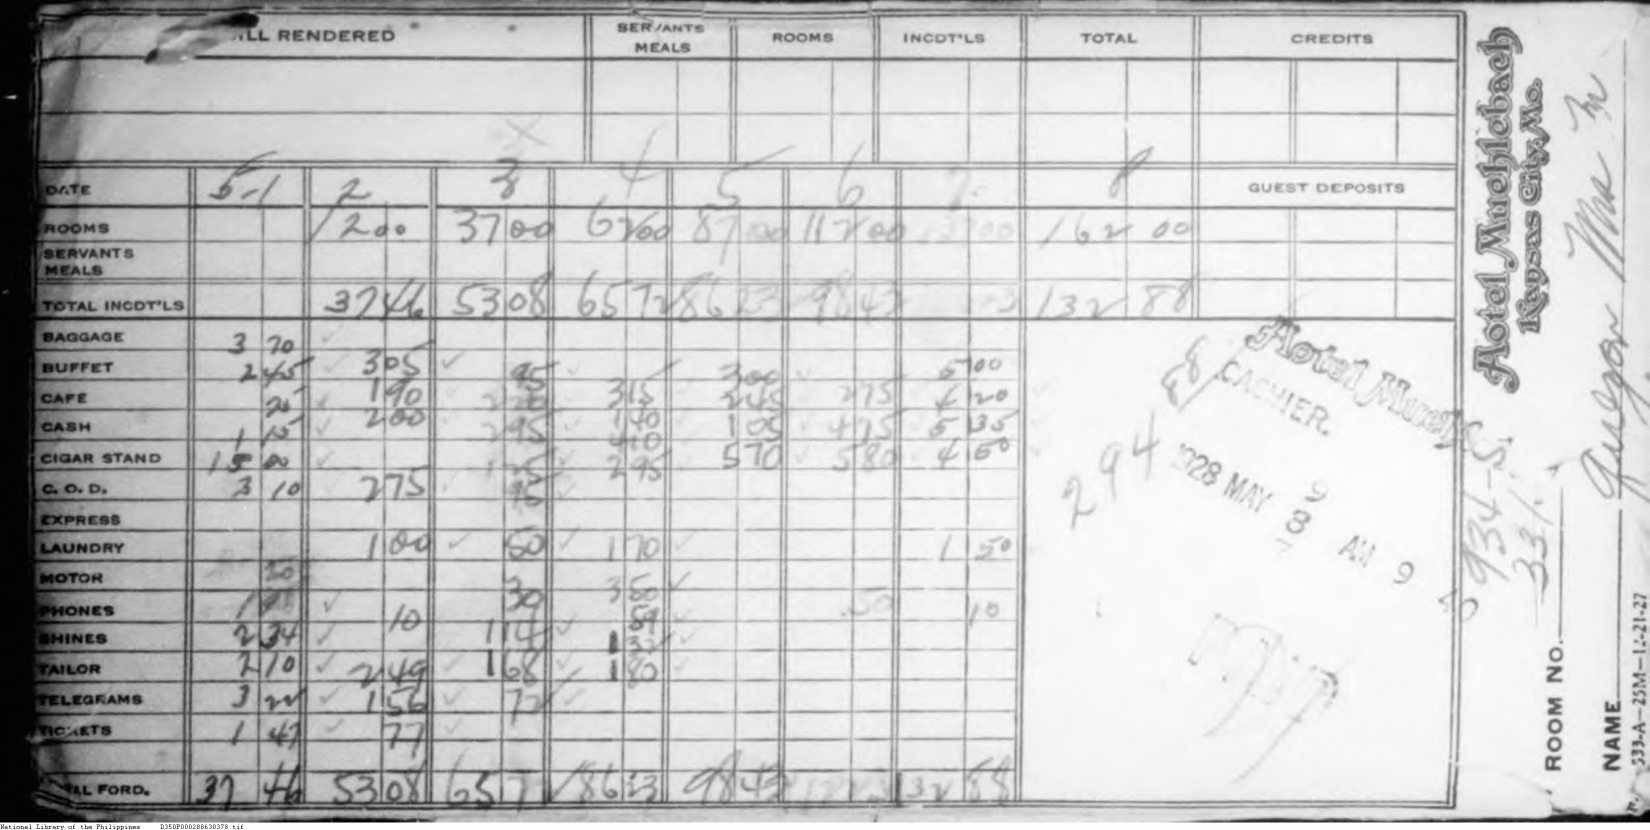 BILL RENDERED SERVANTS MEALS ROOMS INCDT'LS TOTAL CREDITS
DATE 5-1 2 3 4 5 6 7 8 GUEST DEPOSITS
ROOMS 1200 3700 6200 8700 11200 13700 162 00
SERVANTS MEALS
TOTAL INCDT'LS 3746 5308 6572 8623 9843 132 88
BAGGAGE 3 70
BUFFET 2 45 305 95 300 5 00
CAFE 25 190 315 245 275 4 20
CASH 1 25 200 295 140 105 475 5 35
CIGAR STAND 15 00 410 295 570 580 4 50
C. O. D. 3 10 275 95
EXPRESS
LAUNDRY 100 50 170 1 50
MOTOR 20
PHONES 10 30 350 59 50 10
SHINES 2 34 114 132
TAILOR 2 10 249 168 180
TELEGRAMS 3 22 156 72
TICKETS 1 47 77
TOTAL FORD. 37 46 5308 6572 8623 9843 132 88
Hotel Muehlebach
CASHIER.
1928 MAY 8 AM 9
294 88
Hotel Muehlebach
Kansas City, Mo.
ROOM NO. 934-5
331.
NAME Quezon Mrs M
333-A-25M-12-21-27
National Library of the Philippines D350P000288630378.tif